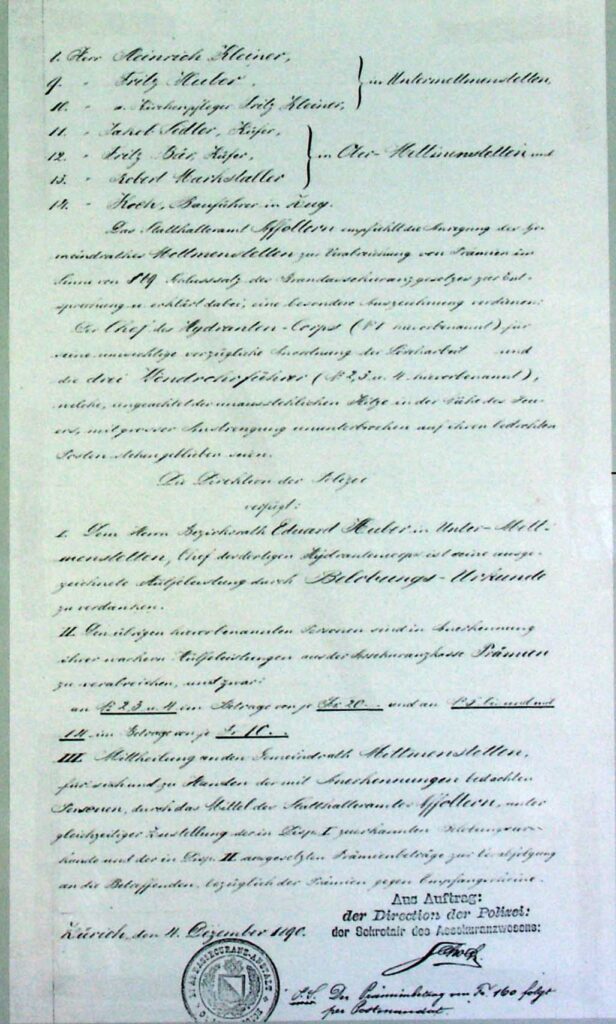 8. Herr Heinrich Kleiner,
9. " Fritz Huber, } in Untermettmenstetten,
10. " a. Kirchenpfleger Fritz Kleiner,
11. " Jakob Sidler, Küfer,
12. " Fritz Bär, Küfer, } in Ober-Mettmenstetten und
13. " Robert Marksteller
14. " Koch, Bauführer in Zug.
Das Statthalteramt Affoltern empfiehlt die Anregung des Ge-
meindrathes Mettmenstetten zur Verabreichung von Prämien im
Sinne von § 49 des Brandassekuranzgesetzes zur Ent-
sprechung u. erklärt dabei, eine besondere Auszeichnung verdienen:
Der Chef des Hydranten-Corps (No 1 hievorbenannt) für
seine umsichtige vorzügliche Anordnung der Löscharbeit und
die drei Wendrohrführer (No 2, 3 u. 4 hievorbenannt),
welche, ungeachtet der unausstehlichen Hitze in der Nähe des Feu-
ers, mit grosser Anstrengung ununterbrochen auf ihren bedrohten
Posten stehen geblieben seien.
Die Direktion der Polizei
verfügt:
I. Dem Herrn Bezirksrath Eduard Huber in Unter-Mett-
menstetten, Chef des dortigen Hydrantencorps ist seine ausge-
zeichnete Hülfeleistung durch Belobungs-Urkunde
zu verdanken.
II. Den übrigen hievorbenannten Personen sind in Anerkennung
ihrer wackern Hülfeleistungen aus der Assekuranzkasse Prämien
zu verabreichen, und zwar:
an No 2, 3 u. 4 im Betrage von je Fr. 20.-. und an No 5 bis und mit
14 im Betrage von je Fr. 10.-.
III. Mittheilung an den Gemeindrath Mettmenstetten,
für sich und zu Handen der mit Anerkennungen bedachten
Personen, durch das Mittel des Statthalteramtes Affoltern, unter
gleichzeitiger Zustellung der in Disp. I zuerkannten Belobungsur-
kunde und der in Disp. II ausgesetzten Prämienbeträge zur Verabfolgung
an die Betreffenden, bezüglich der Prämien gegen Empfangscheine.
Zürich, den 4. Dezember 1890.
Aus Auftrag:
der Direction der Polizei:
der Sekretair des Assekuranzwesens:
P.S. Der Prämienbetrag von Fr. 160 folgt
per Postmandat.